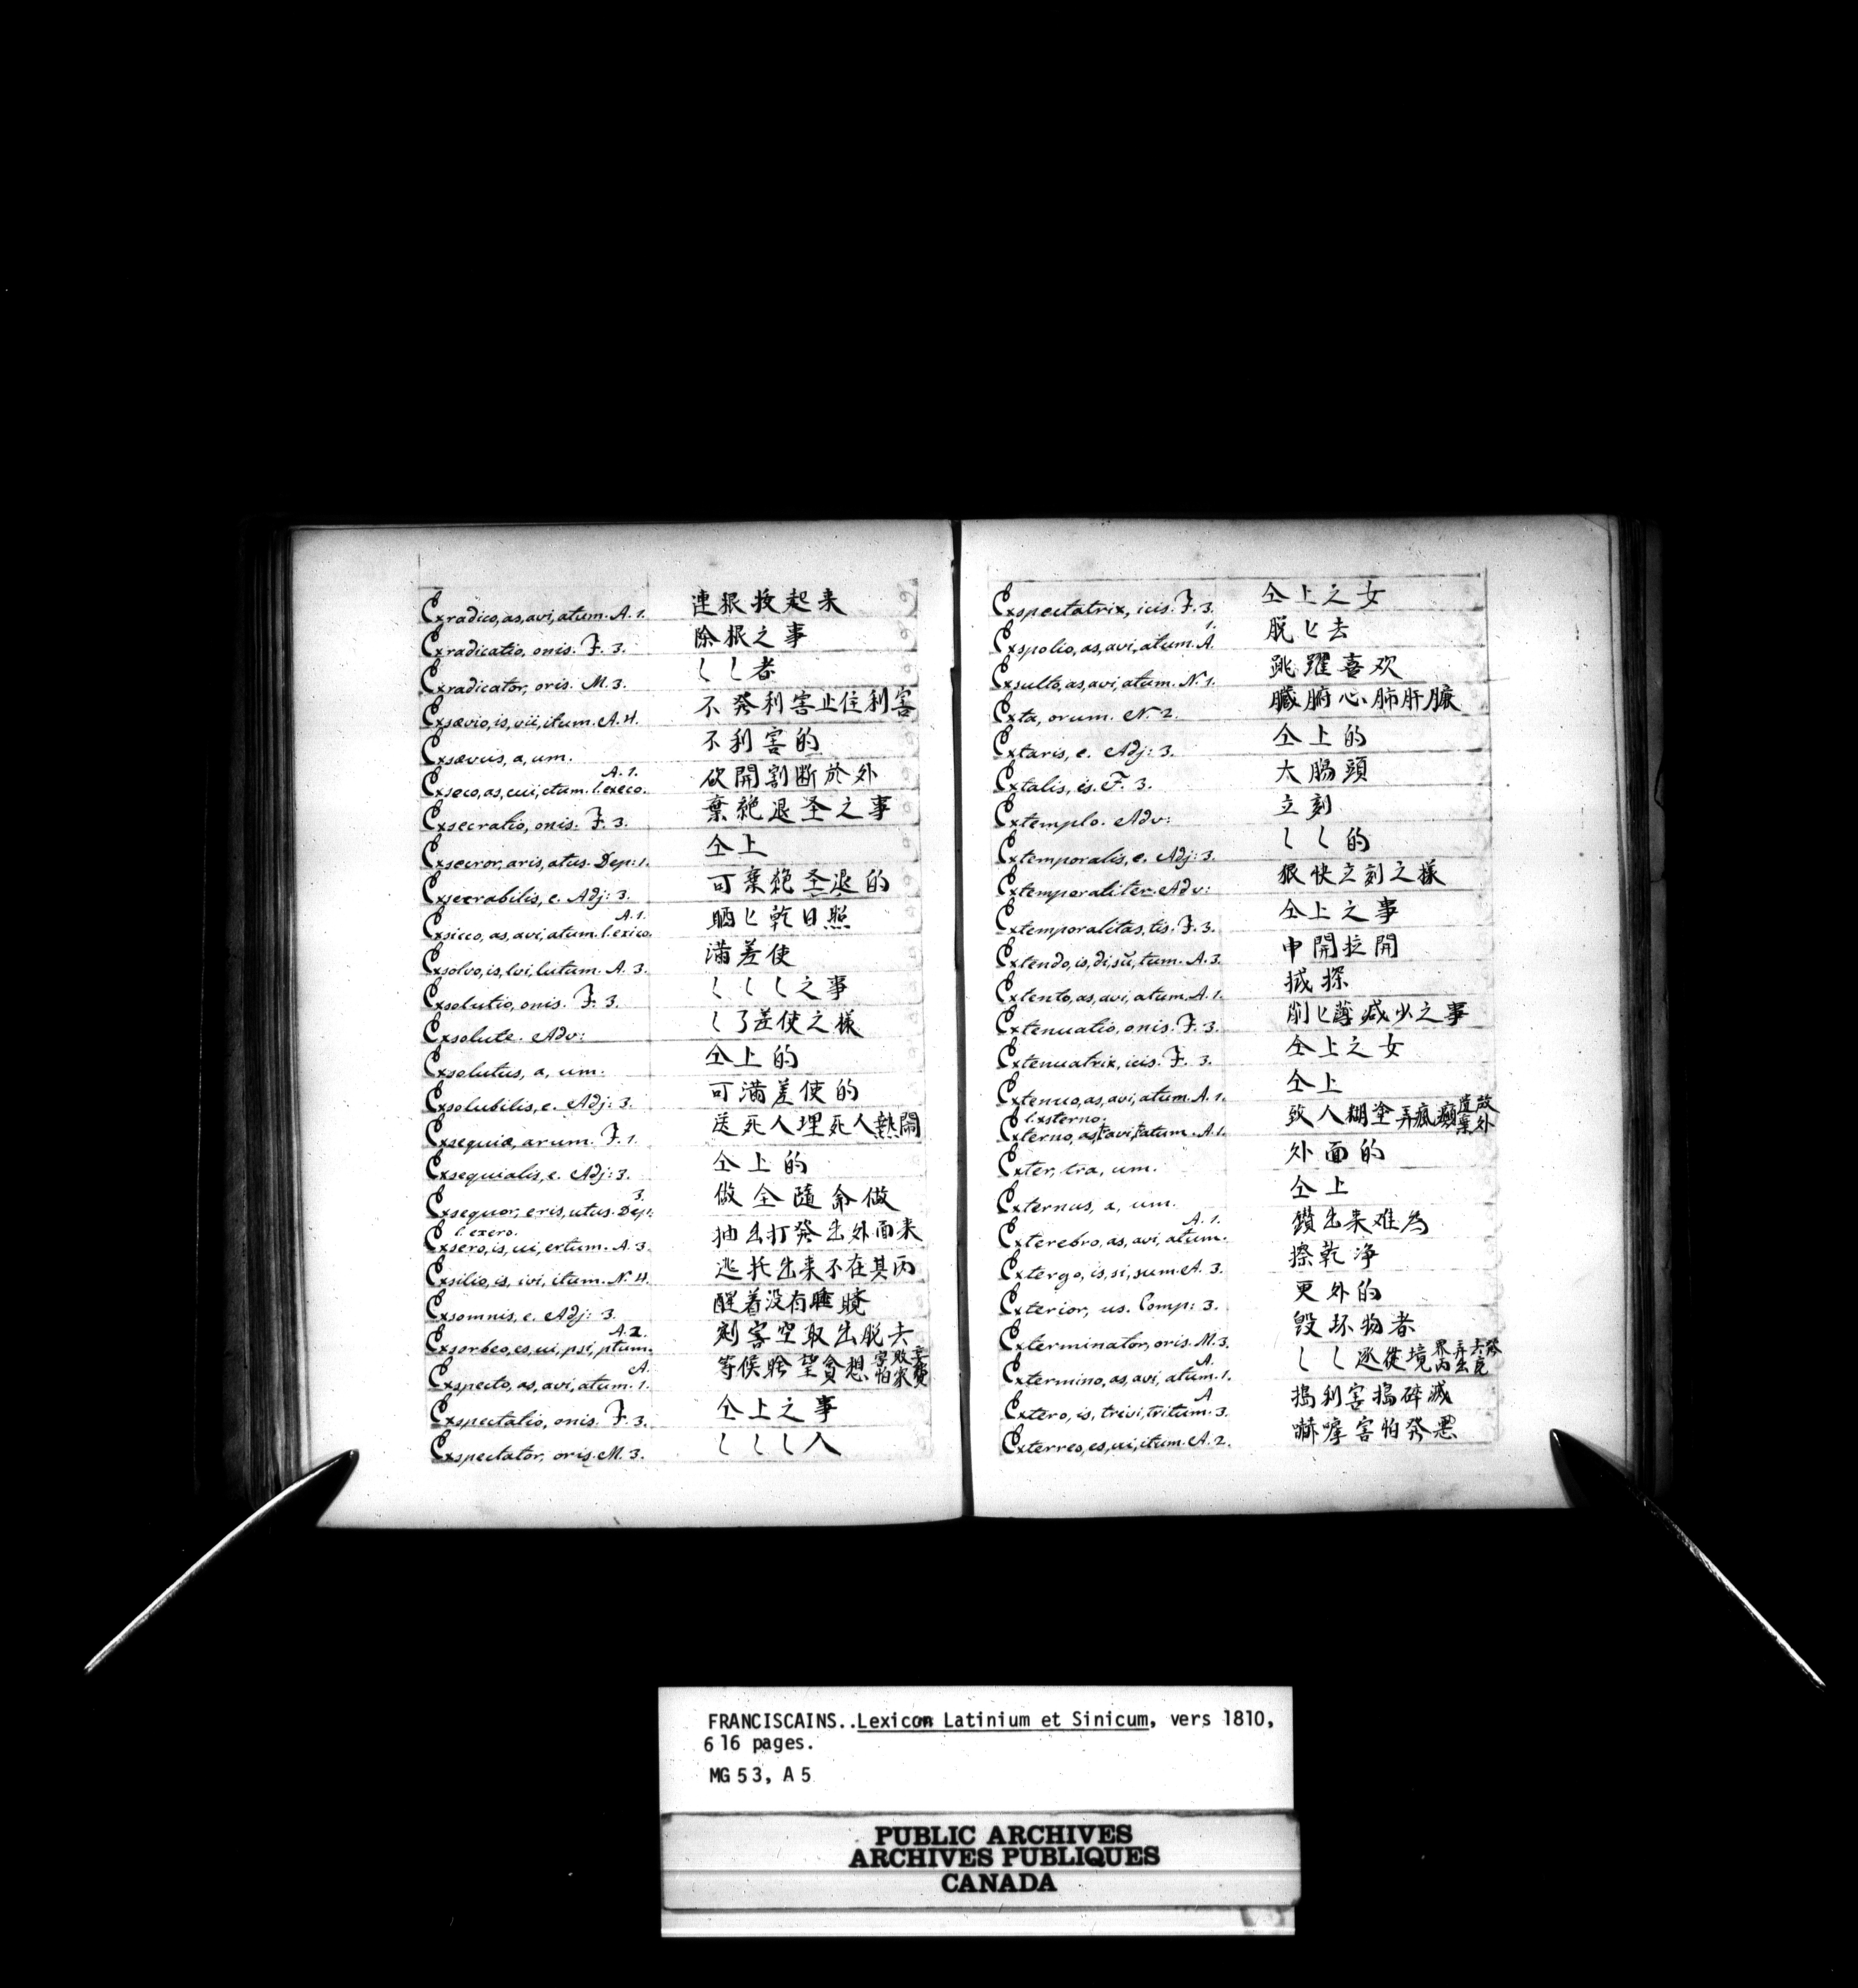 Exradico, as, avi, atum. A. 1. 連根拔起来
Exradicatio, onis. F. 3. 除根之事
Exradicator, oris. M. 3. 〻〻者
Exsævio, is, vii, itum. A. 4. 不發利害止住利害
Exsævus, a, um. 不利害的
Exseco, as, cui, ctum. l. execo. A. 1. 砍開割断於外
Exsecratio, onis. F. 3. 棄絶退圣之事
Exsecror, aris, atus. Dep: 1. 仝上
Exsecrabilis, e. Adj: 3. 可棄絶圣退的
Exsicco, as, avi, atum. l. exico. A. 1. 晒〻乾日照
Exsolvo, is, lvi, lutum. A. 3. 满差使
Exsolutio, onis. F. 3. 〻〻〻之事
Exsolute. Adv: 〻了差使之樣
Exsolutus, a, um. 仝上的
Exsolubilis, e. Adj: 3. 可满差使的
Exsequiæ, arum. F. 1. 送死人埋死人熱鬧
Exsequialis, e. Adj: 3. 仝上的
Exsequor, eris, utus. Dep: 3. 做全隨命做
Exsero, is, ui, ertum. A. 3. l. exero. 抽出打發出外面来
Exsilio, is, ivi, itum. N. 4. 逃托出来不在其丙
Exsomnis, e. Adj: 3. 醒着没有睡
Exsorbeo, es, ui, psi, ptum. A. 2. 空取出脱去
Exspecto, as, avi, atum. A. 1. 等候 望貪想
Exspectatio, onis. F. 3. 仝上之事
Exspectator, oris. M. 3. 〻〻〻人
Exspectatrix, icis. F. 3. 仝上之女
Exspolio, as, avi, atum. A. 1. 脱〻去
Exsulto, as, avi, atum. N. 1. 跳躍喜欢
Exta, orum. N. 2. 臓腑心肺肝
Extaris, e. Adj: 3. 仝上的
Extalis, is. F. 3. 大腸頭
Extemplo. Adv: 立刻
Extemporalis, e. Adj: 3. 〻〻的
Extemporaliter. Adv: 狠快立刻之樣
Extemporalitas, tis. F. 3. 仝上之事
Extendo, is, di, sū, tum. A. 3. 申開拉開
Extento, as, avi, atum. A. 1. 探
Extenuatio, onis. F. 3. 削〻薄减少之事
Extenuatrix, icis. F. 3. 仝上之女
Extenuo, as, avi, atum. A. 1. 仝上
Externo, as, avi, atum. A. 1. l. exsterno. 致人糊塗弄瘋癲
Exter, tra, um. 外面的
Externus, a, um. 仝上
Exterebro, as, avi, atum. A. 1. 鑽出来难為
Extergo, is, si, sum. A. 3. 擦乾净
Exterior, us. Comp: 3. 更外的
Exterminator, oris. M. 3. 毁坏物者
Extermino, as, avi, atum. A. 1. 〻〻逐從境界丙弄出去
Extero, is, trivi, tritum. A. 3. 搗利害搗碎滅
Exterreo, es, ui, itum. A. 2. 嚇 害怕發
FRANCISCAINS..Lexicon Latinium et Sinicum, vers 1810,
616 pages.
MG 53, A 5
PUBLIC ARCHIVES
ARCHIVES PUBLIQUES
CANADA